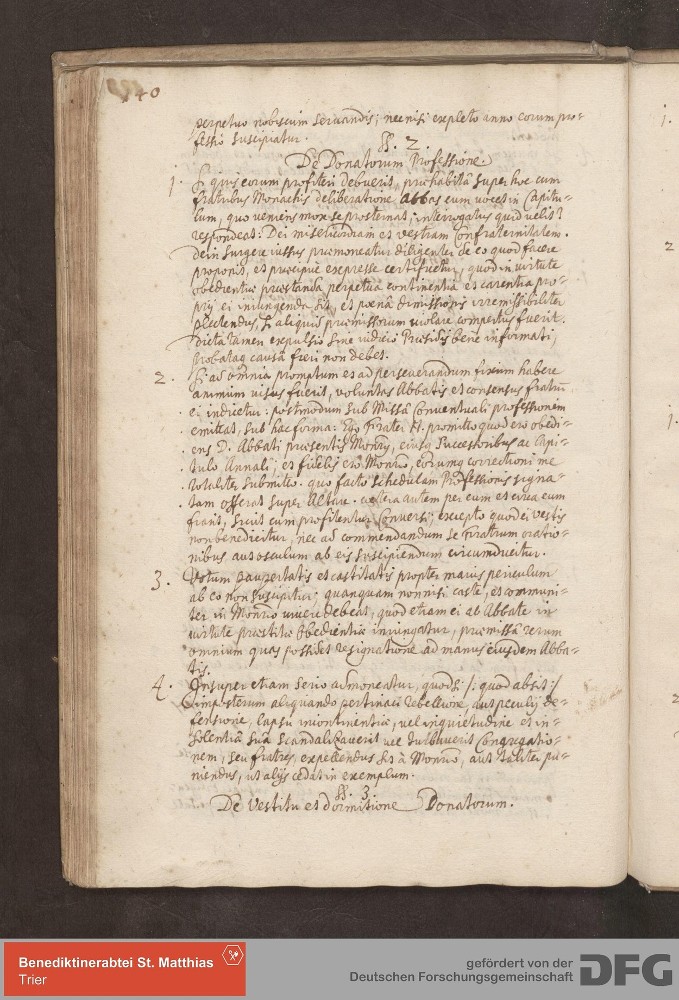 140
perpetuo nobiscum servandis; nec nisi expleto anno eorum pro=
fessio suscipiatur.
§§. 2.
De Donatorum Professione
1. Si quis eorum profiteri debuerit, præhabitâ super hoc cum
fratribus Monachis deliberatione, Abbas eum vocet in Capitu=
lum, quo veniens mox se prosternat; interrogatus quid velit?
respondeat: Dei misericordiam et vestram Confraternitatem.
dein surgere iussus præmoneatur diligenter de eo quod facere
proponit, et præcipuè expresse certificetur, quod in virtute
obedientiæ præstandæ perpetua continentia et carentia pro=
prij ei iniungenda sit, et poenâ dimissionis irremissibiliter
plectendus, si aliquid præmissorum violare compertus fuerit.
dicta tamen expulsio sine iudicio Præsidis bene informati,
probatáq causâ fieri non debet.
2. Si ad omnia promptum et ad perseverandum fixum habere
animum visus fuerit, voluntas Abbatis et consensus fratrū
ei indicetur: postmodum sub Missâ Conventuali professionem
emittat, sub hac forma: Ego frater N. promitto quod ero obedi=
ens D. Abbati præsentis Monrÿ, eiusq Successoribus ac Capi=
tulo Annali, et fidelis ero Monrio, eorumq correctioni me
totaliter submitto. quo facto schedulam Professionis signa=
tam offerat super Altare. cætera autem per eum et circa eum
fiant, sicut cum profitentur Conversi; excepto quod ei vestis
non benedicitur, nec ad commendandum se fratrum oratio=
nibus aut osculum ab eis suscipiendum circumducitur.
3. Votum paupertatis et castitatis propter maius periculum
ab eo non suscipitur; quanquam non nisi caste, et communi=
ter in Monrio vivere debeat, quod etiam ei ab Abbate in
virtute præstitæ obedientiæ iniungatur, præmissâ rerum
omnium quas possidet resignatione ad manus eiusdem Abba=
tis.
4. Insuper etiam serio admoneatur, quod si /: quod absit :/
imposterum aliquando pertinaci rebellione, aut peculij de=
fensione, lapsu incontinentiæ, vel inquietudine et in=
solentiâ suâ scandalizaverit vel turbaverit Congregatio=
nem, seu fratres, expellendus sit à Monrio, aut taliter pu=
niendus, ut alijs cedat in exemplum.
§§. 3.
De Vestitu et dormitione Donatorum.
Benediktinerabtei St. Matthias
Trier
gefördert von der
Deutschen Forschungsgemeinschaft
DFG